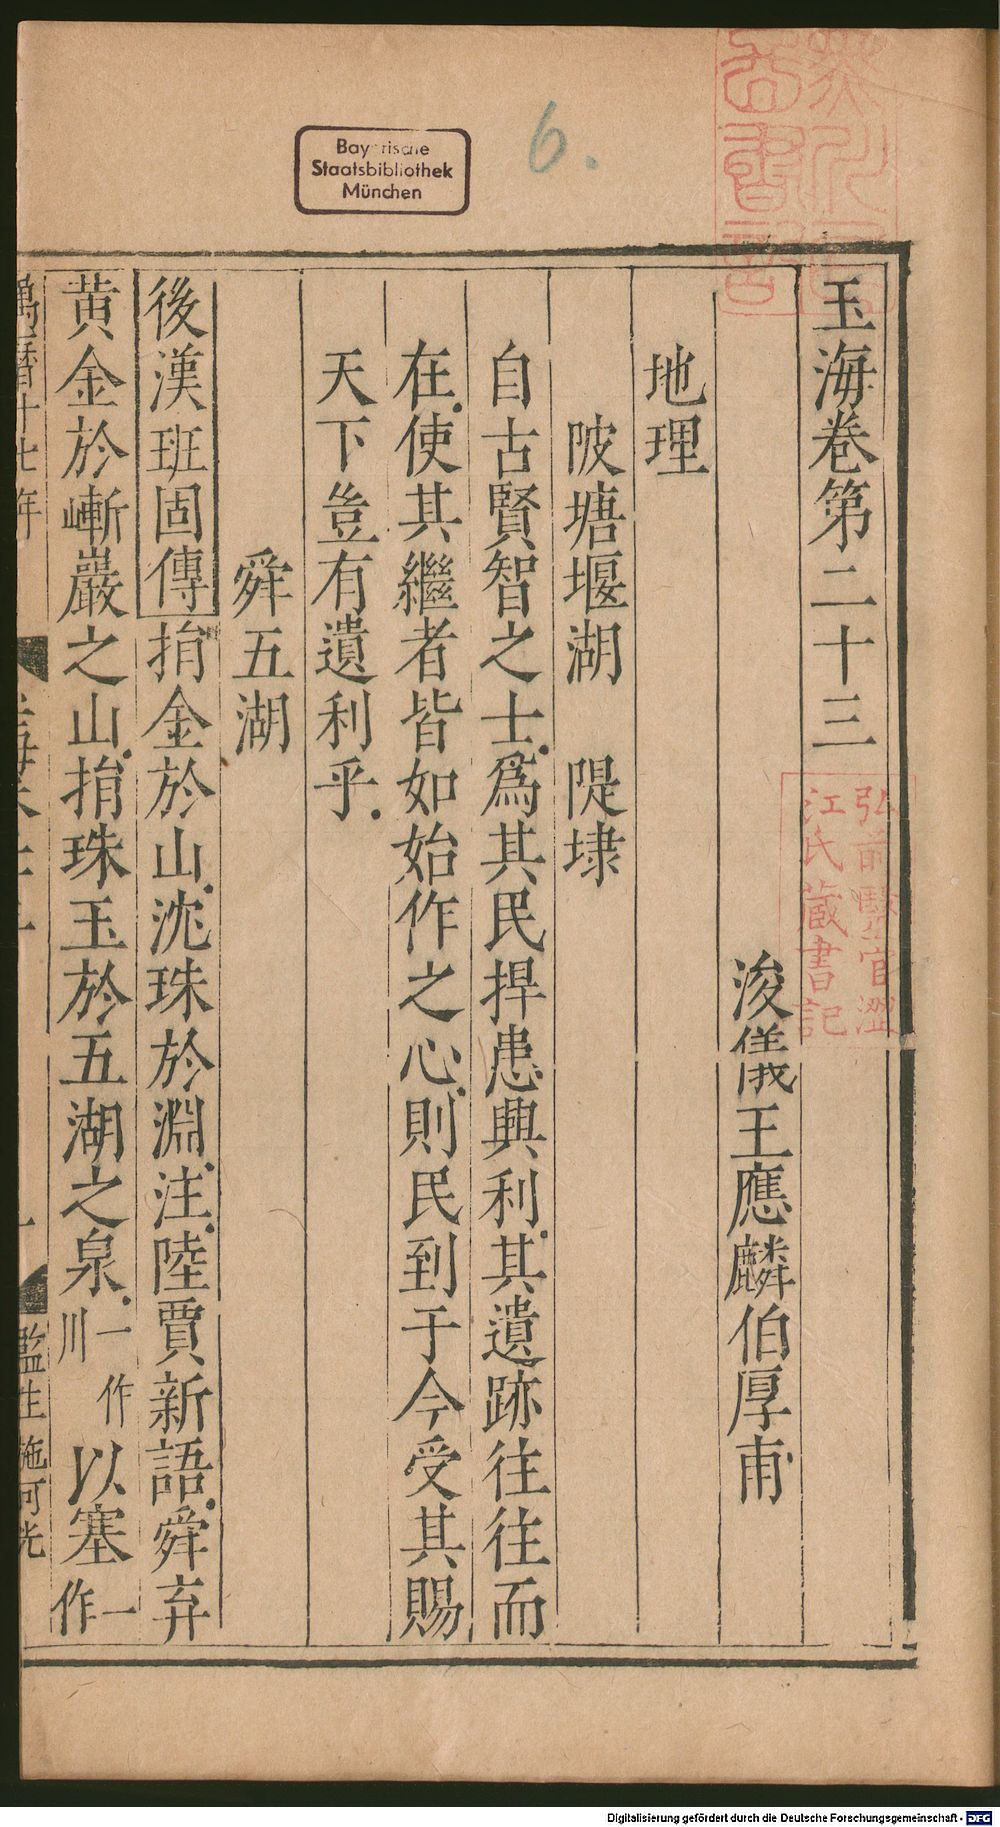 Bayerische
Staatsbibliothek
München
6.
玉海卷第二十三
浚儀王應麟伯厚甫
地理
陂塘堰湖　隄埭
自古賢智之士爲其民捍患興利其遺跡往往而
在使其繼者皆如始作之心則民到于今受其賜
天下豈有遺利乎
舜五湖
後漢班固傳捐金於山沈珠於淵注陸賈新語舜弃
黄金於嶃巖之山捐珠玉於五湖之泉一作川以塞一作
萬曆十七年
監生施可光
弘前醫官澀
江氏藏書記
Digitalisierung gefördert durch die Deutsche Forschungsgemeinschaft - DFG